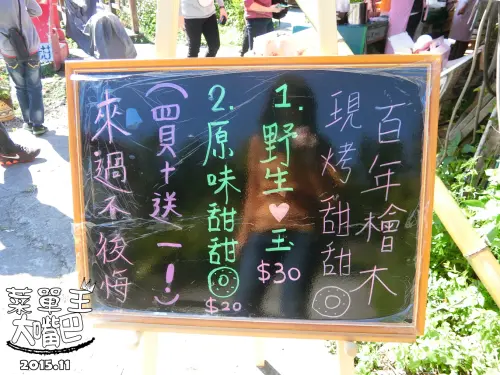 百年檜木
現烤甜甜◎
1.野生♥玉
$30
2.原味甜甜◎
$20
(買十送一!)
來過不後悔
菜單王
大嘴巴
2015.11